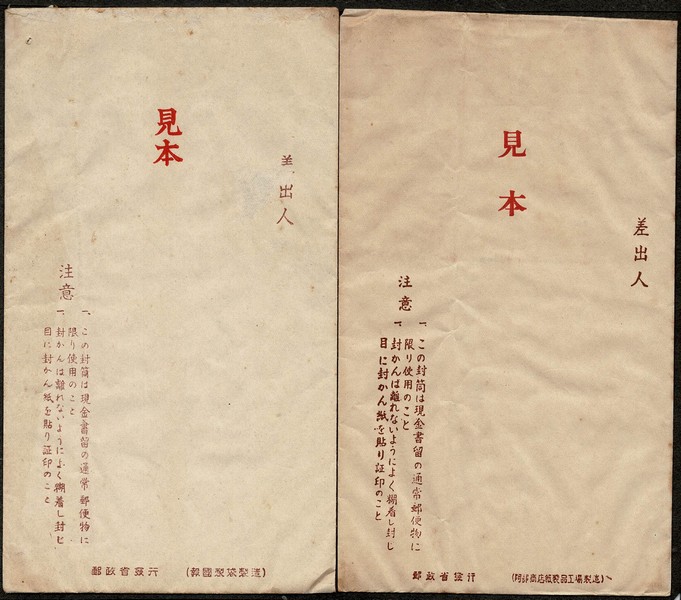 見本
差出人
注意
一、この封筒は現金書留の通常郵便物に
限り使用のこと
一、封かんは離れないようによく糊着し封じ
目に封かん紙を貼り証印のこと
郵政省発行
(報國製袋製造)
見本
差出人
注意
一、この封筒は現金書留の通常郵便物に
限り使用のこと
一、封かんは離れないようによく糊着し封じ
目に封かん紙を貼り証印のこと
郵政省発行
商店紙製品工場製造)